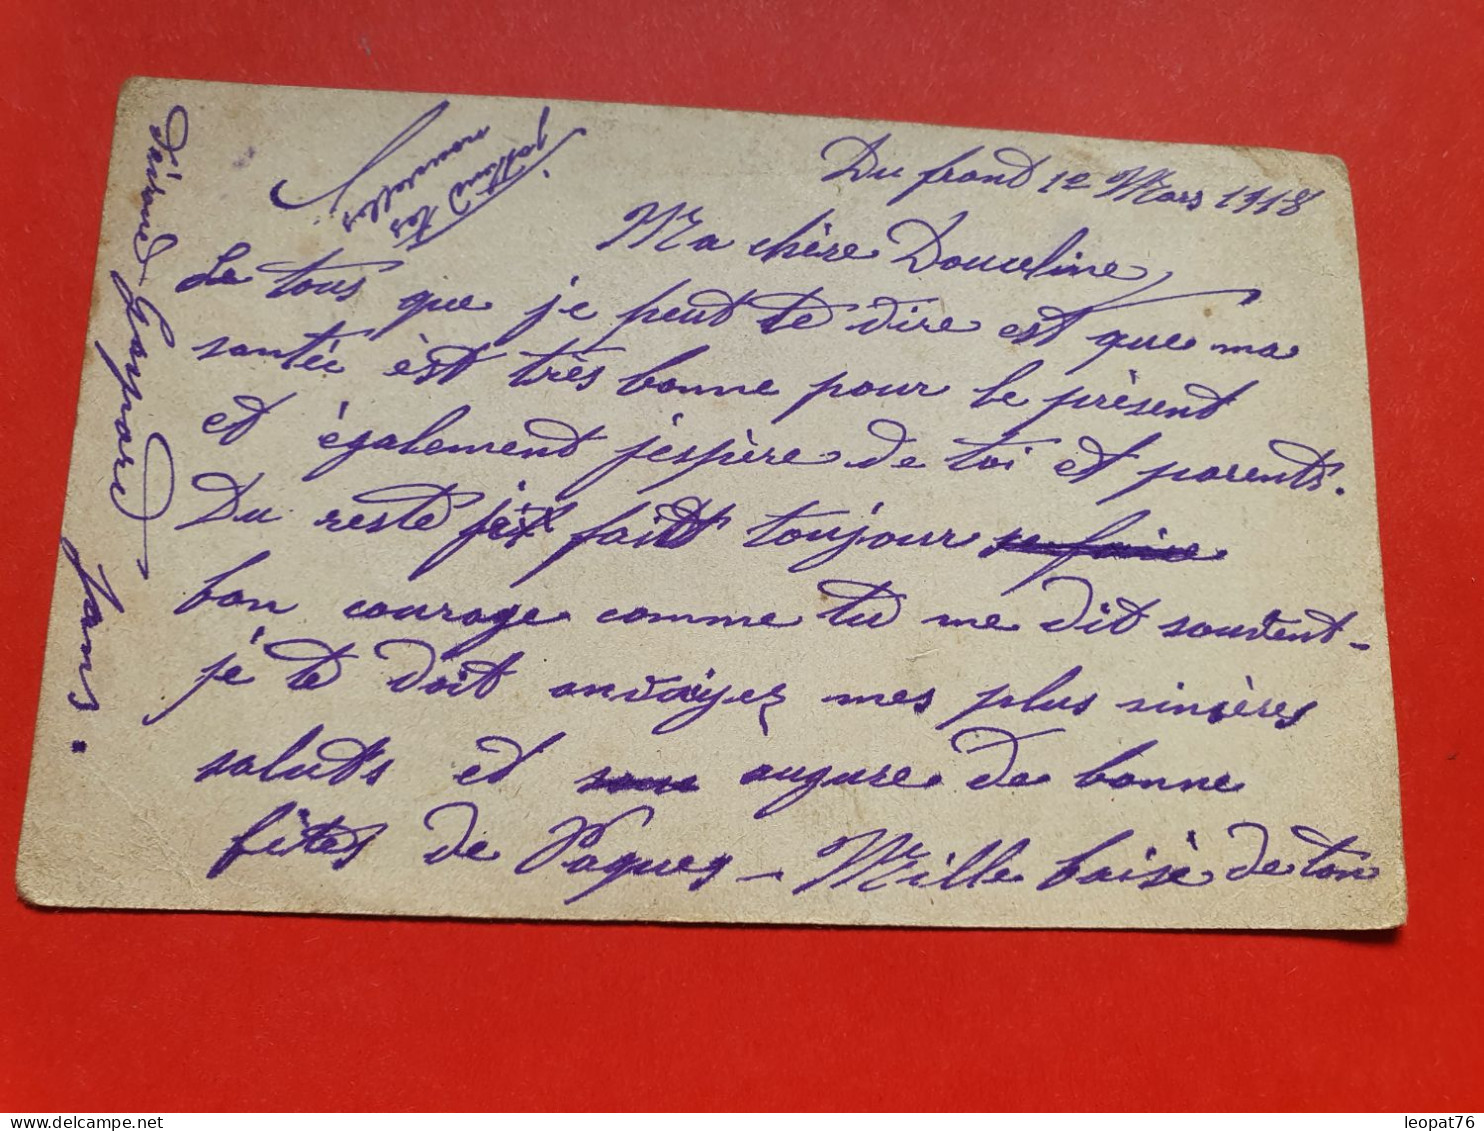 Du front 12 Mars 1918
Ma chère Douceline
Le tous que je peut te dire est que ma
santée èst très bonne pour le prèsent
et également j'espère de toi et parents.
Du reste fait toujour se faire
bon courage comme tu me dit souvent -
je te doit anvoiyez mes plus sincères
saluts et augure de bonne
fêtes de Paques - Mille baisé de ton
j'attend tes
nouvelles
leopat76